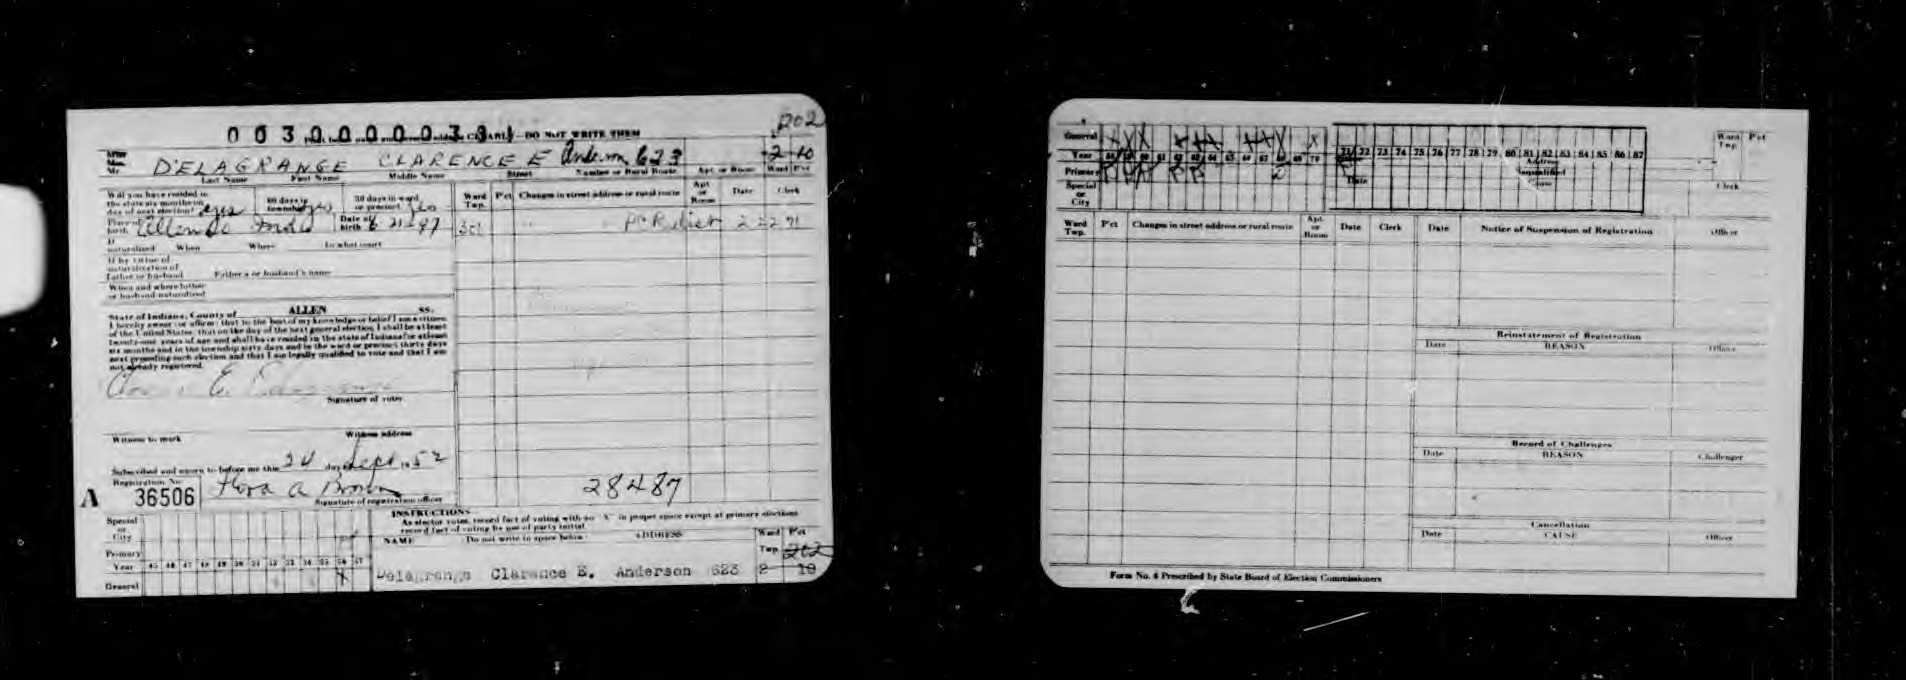 0 0 3 0 0 0 0 0 3 3 1 DO NOT WRITE THEM
202
DELAGRANGE CLARENCE E Anderson 623 2 10
Mrs.
Mr. Last Name First Name Middle Name Street Number or Rural Route Apt or Room Ward Pct
Will you have resided in
the state six months on
day of next election? yes 60 days in
township? yes 30 days in ward
or precinct? yes
Ward
Twp. Pct Changes in street address or rural route Apt
or
Room Date Clerk
Place of
birth Allen Co Ind Date of
birth 6 21 87
301 2 22 71
If
naturalized When Where In what court
If by virtue of
naturalization of
father or husband Father's or husband's name
When and where father
or husband naturalized
State of Indiana, County of ALLEN SS.
I hereby swear (or affirm) that to the best of my knowledge or belief I am a citizen
of the United States, that on the day of the next general election I shall be at least
twenty-one years of age and shall have resided in the state of Indiana for at least
six months and in the township sixty days and in the ward or precinct thirty days
next preceding such election and that I am legally qualified to vote and that I am
not already registered.
Signature of voter
Witness to mark Witness address
Subscribed and sworn to before me this 24 day Sept 19 52
Registration No.
A 36506 Flora A
Signature of registration officer
28487
INSTRUCTIONS
As elector votes, record fact of voting with an "X" in proper space except at primary elections
record fact of voting by use of party initial.
Special
or
City
Primary
Year 45 46 47 48 49 50 51 52 53 54 55 56 57
General X
NAME (Do not write in space below) ADDRESS Ward
Twp. Pct
202
Delagrange Clarence E. Anderson 623 2 10
General X X X X X X X X X X
Year 58 59 60 61 62 63 64 65 66 67 68 69 70 71 72 73 74 75 76 77 78 79 80 81 82 83 84 85 86 87
Primary
Special
or
City
Date
Address
Disqualified
Cause
Ward
Twp. Pct
Clerk
Ward
Twp. Pct Changes in street address or rural route Apt.
or
Room Date Clerk Date Notice of Suspension of Registration Officer
Reinstatement of Registration
Date REASON Officer
Record of Challenges
Date REASON Challenger
Cancellation
Date CAUSE Officer
Form No. 4 Prescribed by State Board of Election Commissioners